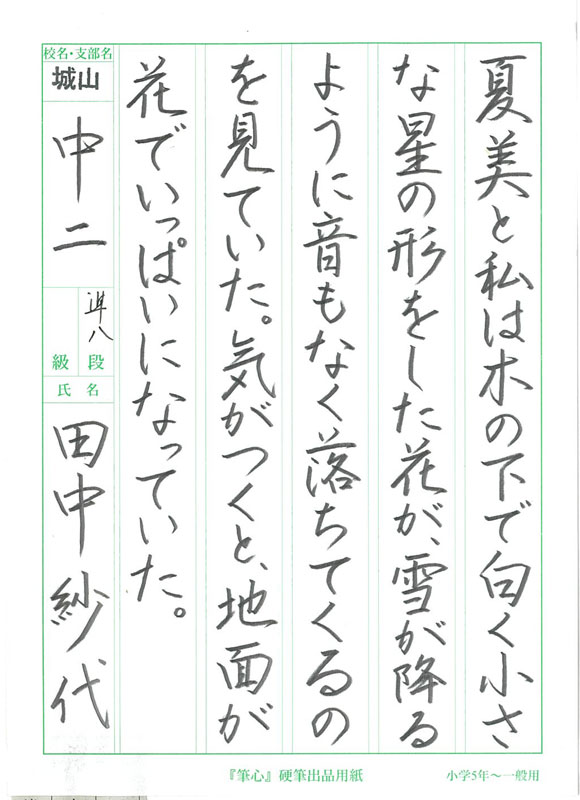 夏美と私は木の下で白く小さ
な星の形をした花が、雪が降る
ように音もなく落ちてくるの
を見ていた。気がつくと、地面が
花でいっぱいになっていた。
校名・支部名
城山
中二
準八
段
級
氏名
田中紗代
『筆心』硬筆出品用紙
小学5年〜一般用